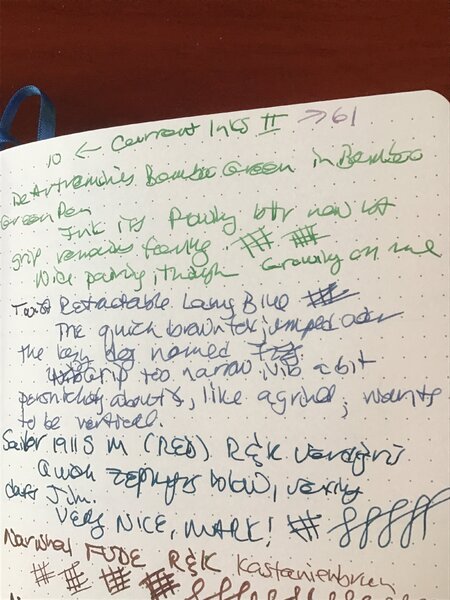 10 ← Current Inks II → 61
DeAtramentis Bamboo Green in Bamboo
Green Pen
Ink its now
grip remains
Nice pairing, though Growing on me
Twist Retractable Lamy Blue
The quick brown fox jumped over
the lazy dog named
grip too narrow, nib a bit
persnickety about , like a grind; wants
to be vertical.
Sailor 1911S M (RED). R&K Verdigris
Quick zephyrs blow, vexing
daft Jim.
VERY NICE, MARK!
Narwhal FUDE R&K Kastanienbraun